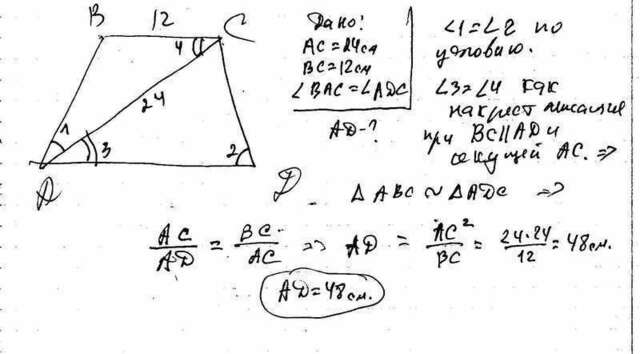 B 12 C
4
24
1
3
2
A
D
Дано:
AC=24см
BC=12см
∠BAC=∠ADC
AD-?
∠1=∠2 по
условию.
∠3=∠4 как
накрест лежащие
при BC∥AD и
секущей AC. ⇒
△ABC ∼ △ADC ⇒
AC/AD = BC/AC ⇒ AD = AC²/BC = 24·24/12 = 48см.
AD=48см.